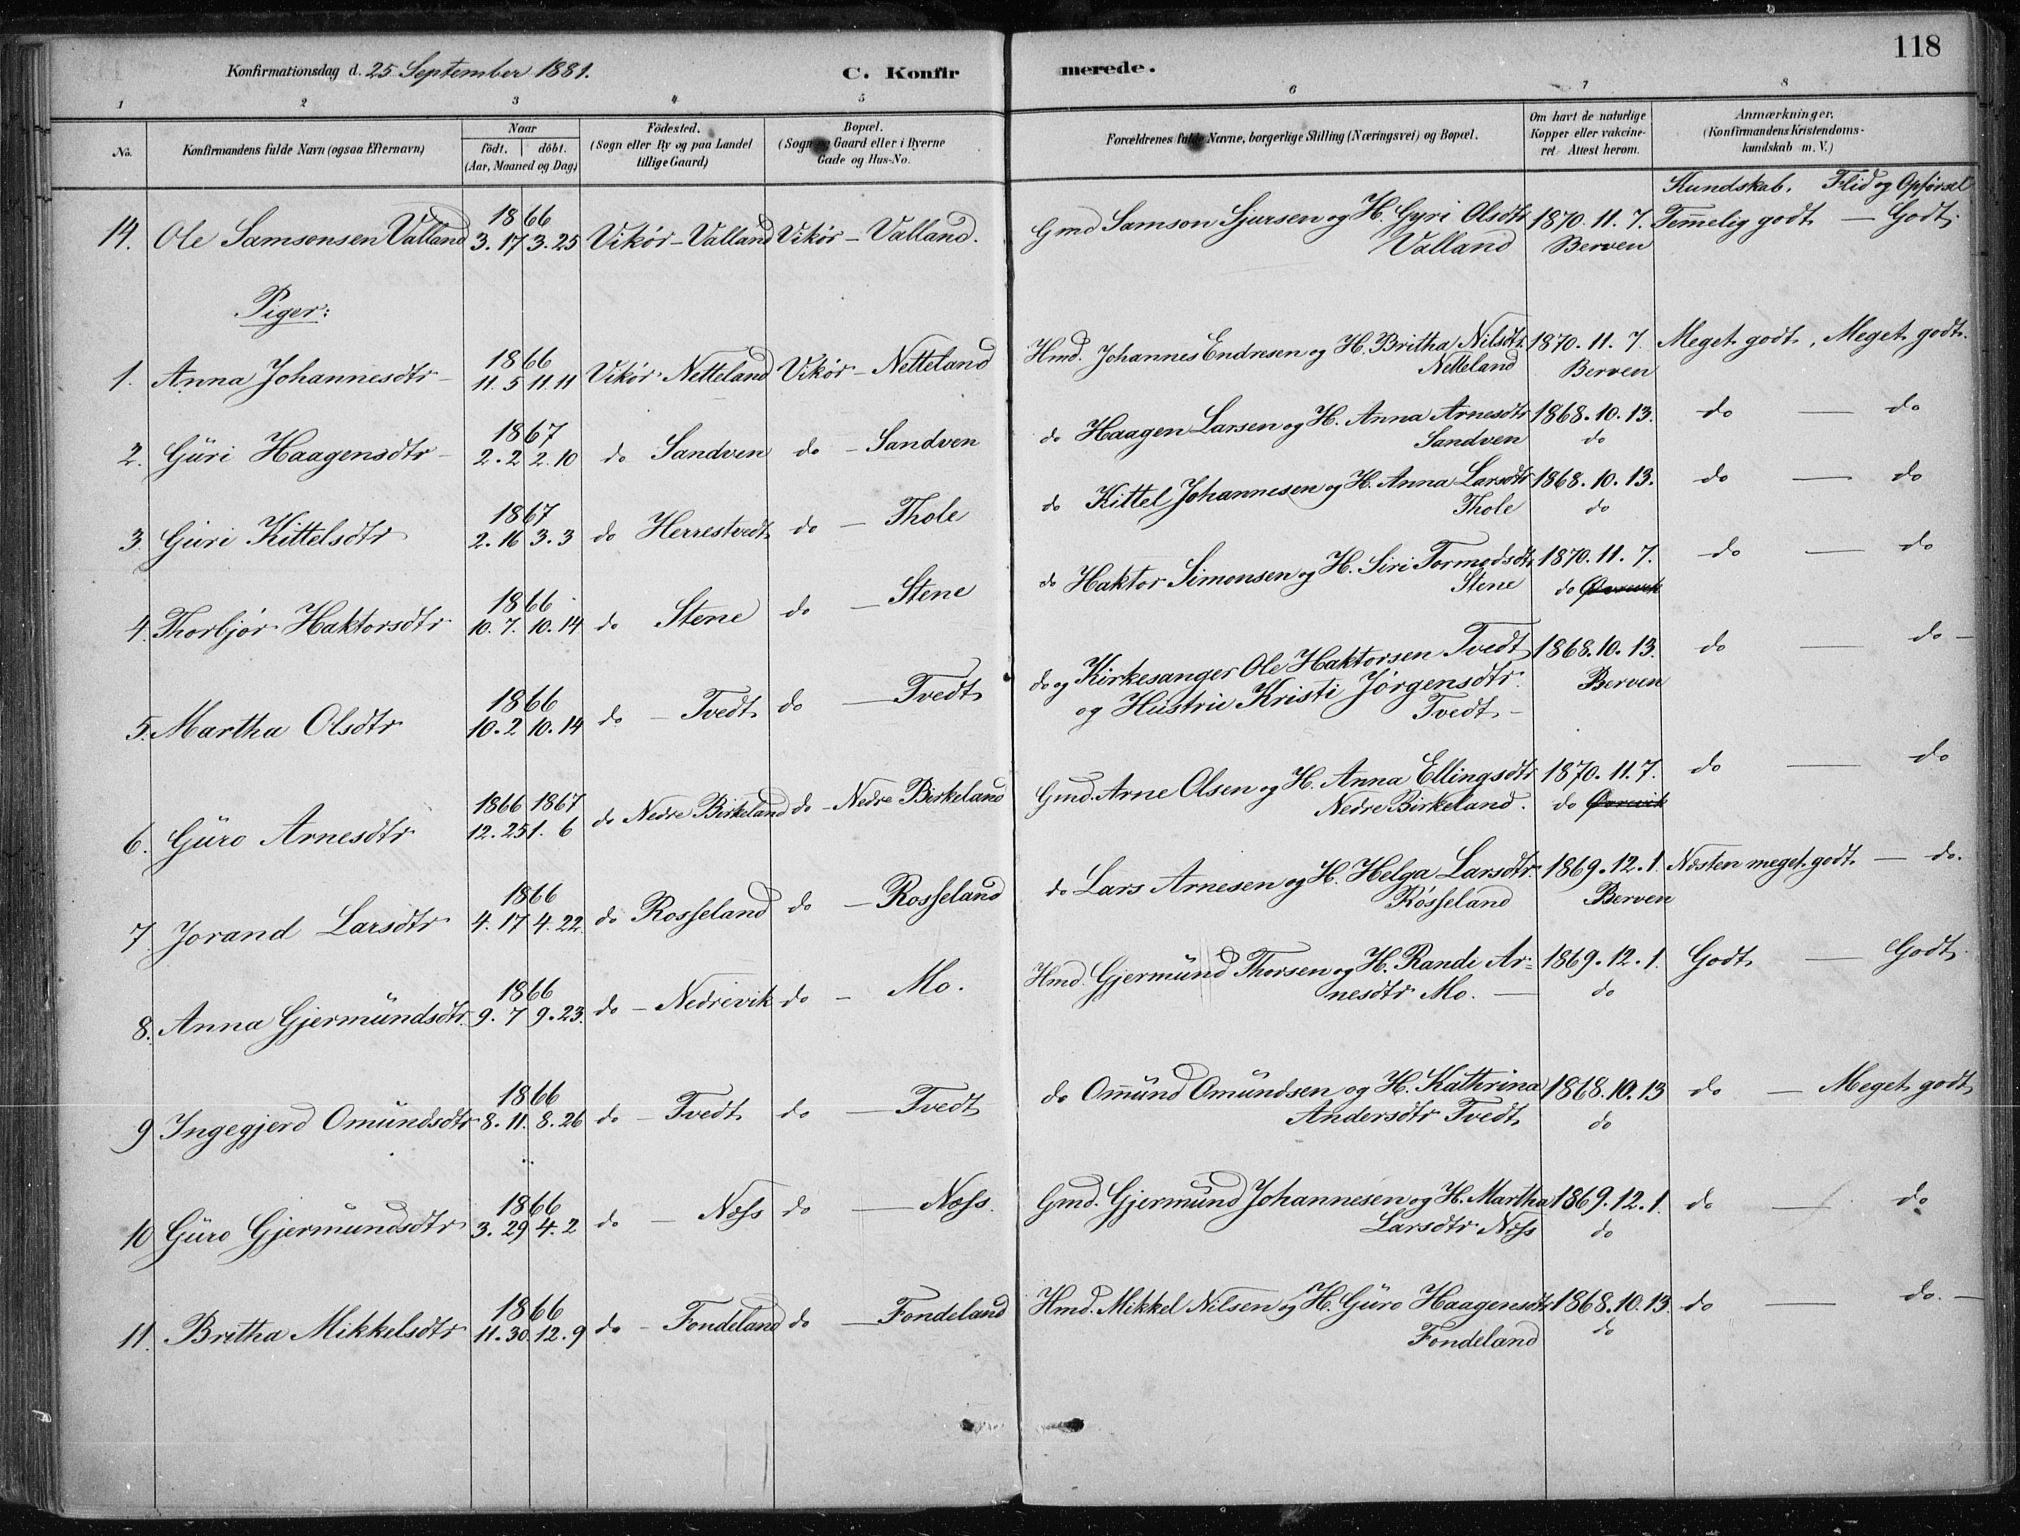 118
Konfirmationsdag d. 25 September 1881. C. Konfir merede.
1 2 3 4 5 6 7 8
No. Konfirmandens fulde Navn (ogsaa Efternavn) Naar født. døbt. (Aar, Maaned og Dag) Fødested. (Sogn eller By og paa Landet tillige Gaard) Bopæl. (Sogn og Gaard eller i Byerne Gade og Hus-No. Forældrenes fulde Navne, borgerlige Stilling (Næringsvei) og Bopæl. Om havt de naturlige Kopper eller vakcineret. Attest herom. Anmærkninger. (Konfirmandens Kristendomskundskab m. V.)
Kundskab. Flid og Opførsel
14. Ole Samsonsen Valland 1866 3. 17 3. 25 Vikør – Valland Vikør – Valland. Gmd Samson Sjursen og H. Gyri Olsdtr 1870. 11. 7. Temmelig godt — Godt.
Valland Berven
Piger:
1. Anna Johannesdtr 1866 11. 5 11. 11 Vikør Netteland Vikør – Netteland Hmd. Johannes Endresen og H. Britha Nilsdtr 1870. 11. 7. Meget godt. Meget godt.
Netteland Berven
2. Guri Haagensdtr 1867 2. 2 2. 10 do Sandven do – Sandven do Haagen Larsen og H. Anna Arnesdtr 1868. 10. 13. do — do
Sandven do
3. Guri Kittelsdtr 1867 2. 16 3. 3 do Herrestvedt do – Thole do Kittel Johannesen og H. Anna Larsdtr 1868. 10. 13. do — do
Thole do
4. Thorbjør Haktorsdtr 1866 10. 7. 10. 14 do Stene do – Stene do Haktor Simonsen og H. Siri Tormodsdtr 1870. 11. 7. do — do
Stene do
5. Martha Olsdtr 1866 10. 2 10. 14 do – Tvedt do — Tvedt do og Kirkesanger Ole Haktorsen Tvedt 1868. 10. 13. do — do –
og Hustru Kristi Jørgensdtr. Berven
Tvedt –
6. Guro Arnesdtr 1866 1867 12. 25 1. 6 do Nedre Birkeland do – Nedre Birkeland Gmd. Arne Olsen og H. Anna Ellingsdtr 1870. 11. 7. do — do
Nedre Birkeland. do
7. Jorand Larsdtr 1866 4. 17 4. 22. do Rosseland do – Rosseland do Lars Arnesen og H. Helga Larsdtr. 1869. 12. 1. Næsten meget godt — do.
Røsseland Berven
8. Anna Gjermundsdtr. 1866 9. 7 9. 23. do – Nedrevik do – Mo. Hmd. Gjermund Thorsen og H. Randi Ar- 1869. 12. 1. Godt — Godt.
nesdtr Mo. — do
9 Ingegjerd Omundsdtr 1866 8. 11. 8. 26 do – Tvedt do — Tvedt do Ommund Omundsen og H. Kathrina 1868. 10. 13 do — Meget godt
Andersdtr Tvedt. do
10 Guro Gjermundsdtr 1866 3. 29 4. 2 do – Næss do — Næss. Gmd. Gjermund Johannesen og H. Martha 1869. 12. 1. do — do
Larsdtr Næss do
11. Britha Mikkelsdtr 1866 11. 30. 12. 9 do – Fondeland do — Fondeland Hmd. Mikkel Nilsen og H. Guro Haagensdtr 1868. 10. 13. do — do. –
Fondeland do